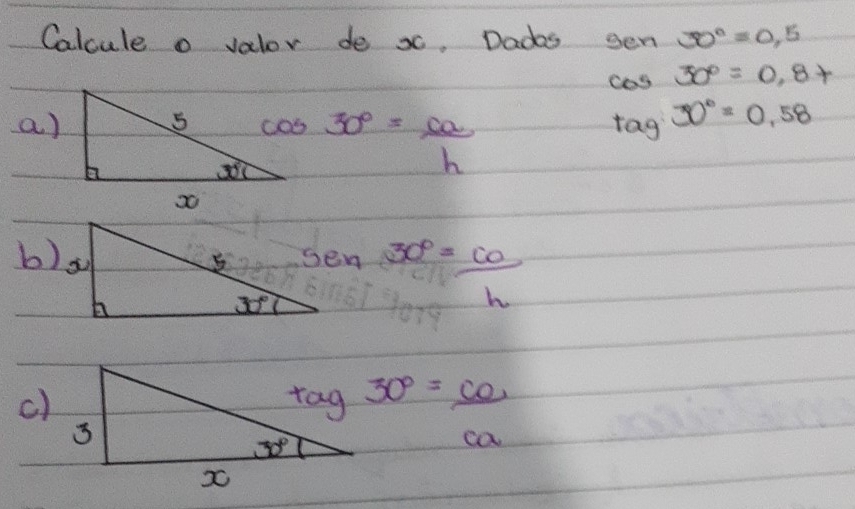 Calcule o valor de x. Dados sen 30° = 0,5
cos 30° = 0,87
tag 30° = 0,58
a) 5 cos 30° = ca
h
30°
x
b) x 5 sen 30° = co
h
30°
c) tag 30° = co
ca
3 30°
x